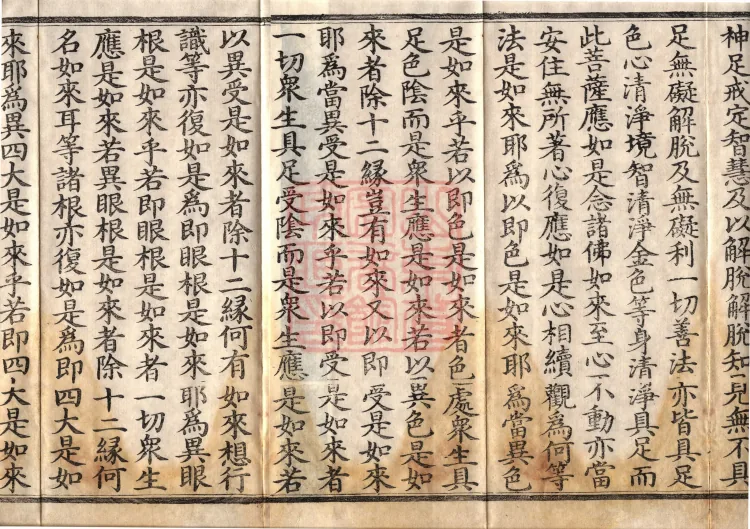 神足戒定智慧及以解脫解脫知見無不具
足無礙解脫及無礙利一切善法亦皆具足
色心清淨境智清淨金色等身清淨具足而
此菩薩應如是念諸佛如來至心不動亦當
安住無所著心復應如是心相續觀爲何等
法是如來耶爲以即色是如來耶爲當異色
是如來乎若以即色是如來者色處衆生具
足色陰而是衆生應是如來若以異色是如
來者除十二緣豈有如來又以即受是如來
耶爲當異受是如來乎若以即受是如來者
一切衆生具足受陰而是衆生應是如來若
以異受是如來者除十二緣何有如來想行
識等亦復如是爲即眼根是如來耶爲異眼
根是如來乎若即眼根是如來者一切衆生
應是如來若異眼根是如來者除十二緣何
名如來耳等諸根亦復如是爲即四大是如
來耶爲異四大是如來乎若即四大是如來